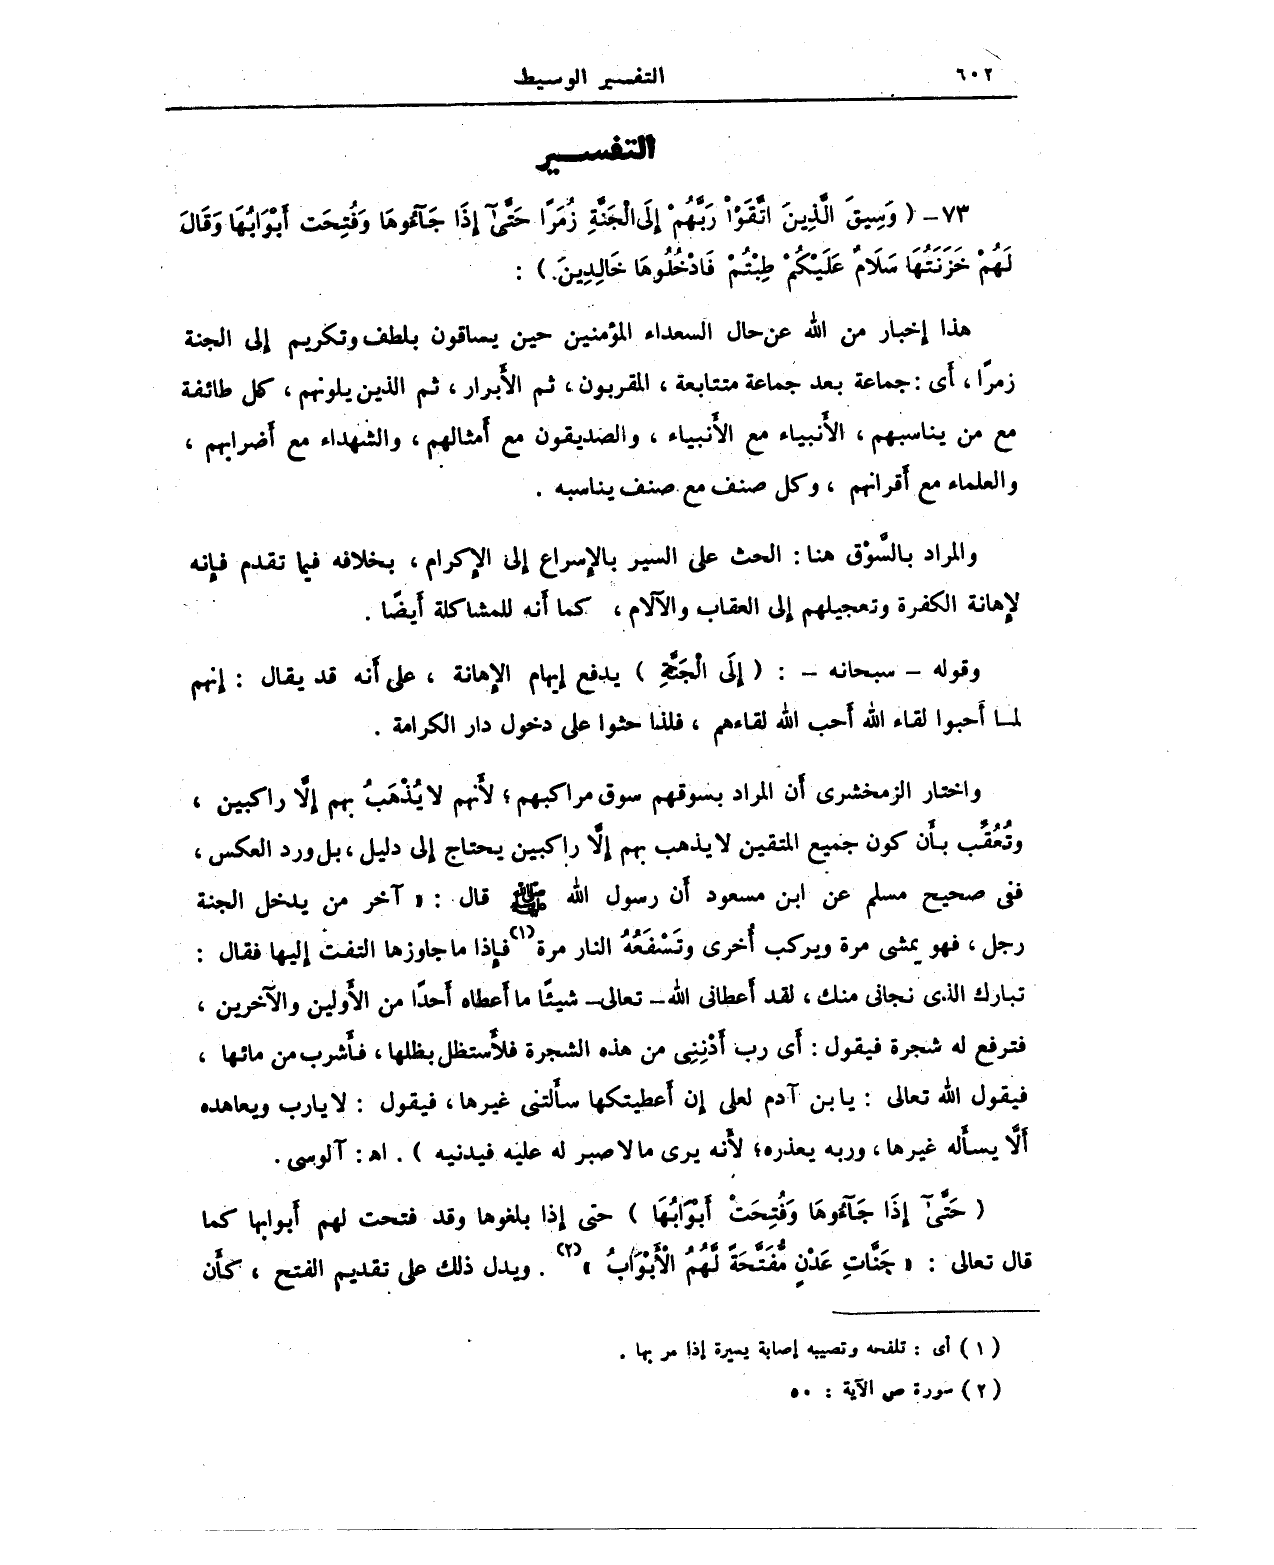 ٦٠٢
التفسير الوسيط
التفسير
٧٣ـ ( وَسِيقَ الَّذِينَ اتَّقَوْا رَبَّهُمْ إِلَى الْجَنَّةِ زُمَرًا حَتَّىٰٓ إِذَا جَآءُوهَا وَفُتِحَت أَبْوَابُهَا وَقَالَ
لَهُمْ خَزَنَتُهَا سَلَامٌ عَلَيْكُمْ طِبْتُمْ فَادْخُلُوهَا خَالِدِينَ. ) :
هذا إخبار من الله عن حال السعداء المؤمنين حين يساقون بلطف وتكريم إلى الجنة
زمرًا ، أى : جماعة بعد جماعة متتابعة ، المقربون ، ثم الأَبرار ، ثم الذين يلونهم ، كل طائفة
مع من يناسبهم ، الأَنبياء مع الأَنبياء ، والصديقون مع أَمثالهم ، والشهداء مع أَضرابهم ،
والعلماء مع أَقرانهم ، وكل صنف مع صنف يناسبه .
والمراد بالسَّوْق هنا : الحث على السير بالإِسراع إلى الإِكرام ، بخلافه فيما تقدم فإِنه
لإِهانة الكفرة وتعجيلهم إلى العقاب والآلام ، كما أَنه للمشاكلة أَيضًا .
وقوله ـ سبحانه ـ : ( إِلَى الْجَنَّةِ ) يدفع إيهام الإِهانة ، على أَنه قد يقال : إنهم
لما أَحبوا لقاء الله أَحب الله لقاءهم ، فلذا حثوا على دخول دار الكرامة .
واختار الزمخشرى أَن المراد بسوقهم سوق مراكبهم ؛ لأَنهم لا يُذْهَبُ بهم إلَّا راكبين ،
وتُعُقِّب بأَن كون جميع المتقين لا يذهب بهم إلَّا راكبين يحتاج إلى دليل ، بل ورد العكس ،
ففى صحيح مسلم عن ابن مسعود أَن رسول الله ﷺ قال : « آخر من يدخل الجنة
رجل ، فهو يمشى مرة ويركب أُخرى وتَسْفَعُهُ النار مرة(١) فإِذا ما جاوزها التفت إليها فقال :
تبارك الذى نجانى منك ، لقد أعطانى الله ـ تعالى ـ شيئًا ما أَعطاه أَحدًا من الأَولين والآخرين ،
فترفع له شجرة فيقول : أَى رب أَدْنِنِى من هذه الشجرة فلأَستظل بظلها ، فأَشرب من مائها ،
فيقول الله تعالى : يابن آدم لعلى إن أَعطيتكها سأَلتنى غيرها ، فيقول : لا يارب ويعاهده
أَلَّا يسأَله غيرها ، وربه يعذره ؛ لأَنه يرى ما لا صبر له عليه فيدنيه ) . اه : آلوسى .
( حَتَّىٰٓ إِذَا جَآءُوهَا وَفُتِحَتْ أَبْوَابُهَا ) حتى إذا بلغوها وقد فتحت لهم أبوابها كما
قال تعالى : « جَنَّاتِ عَدْنٍ مُّفَتَّحَةً لَّهُمُ الْأَبْوَابُ »(٢) . ويدل ذلك على تقديم الفتح ، كأَن
( ١ ) أى : تلفحه وتصيبه إصابة يسيرة إذا مر بها .
( ٢ ) سورة ص الآية : ٥٠